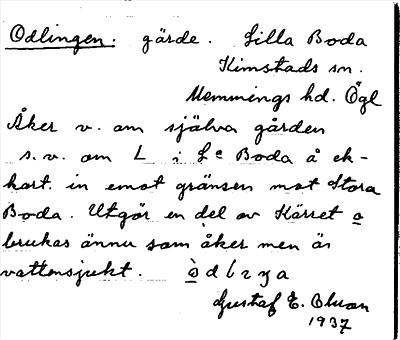 Odlingen. gärde. Lilla Boda
Kimstads sn.
Memmings hd. Ögl
Åker v. om själva gården
s.v. om L i La Boda å ek-
kart. in emot gränsen mot Stora
Boda. Utgör en del av Kärret a
brukas ännu som åker men är
vattensjukt.
Gustaf E.
1937